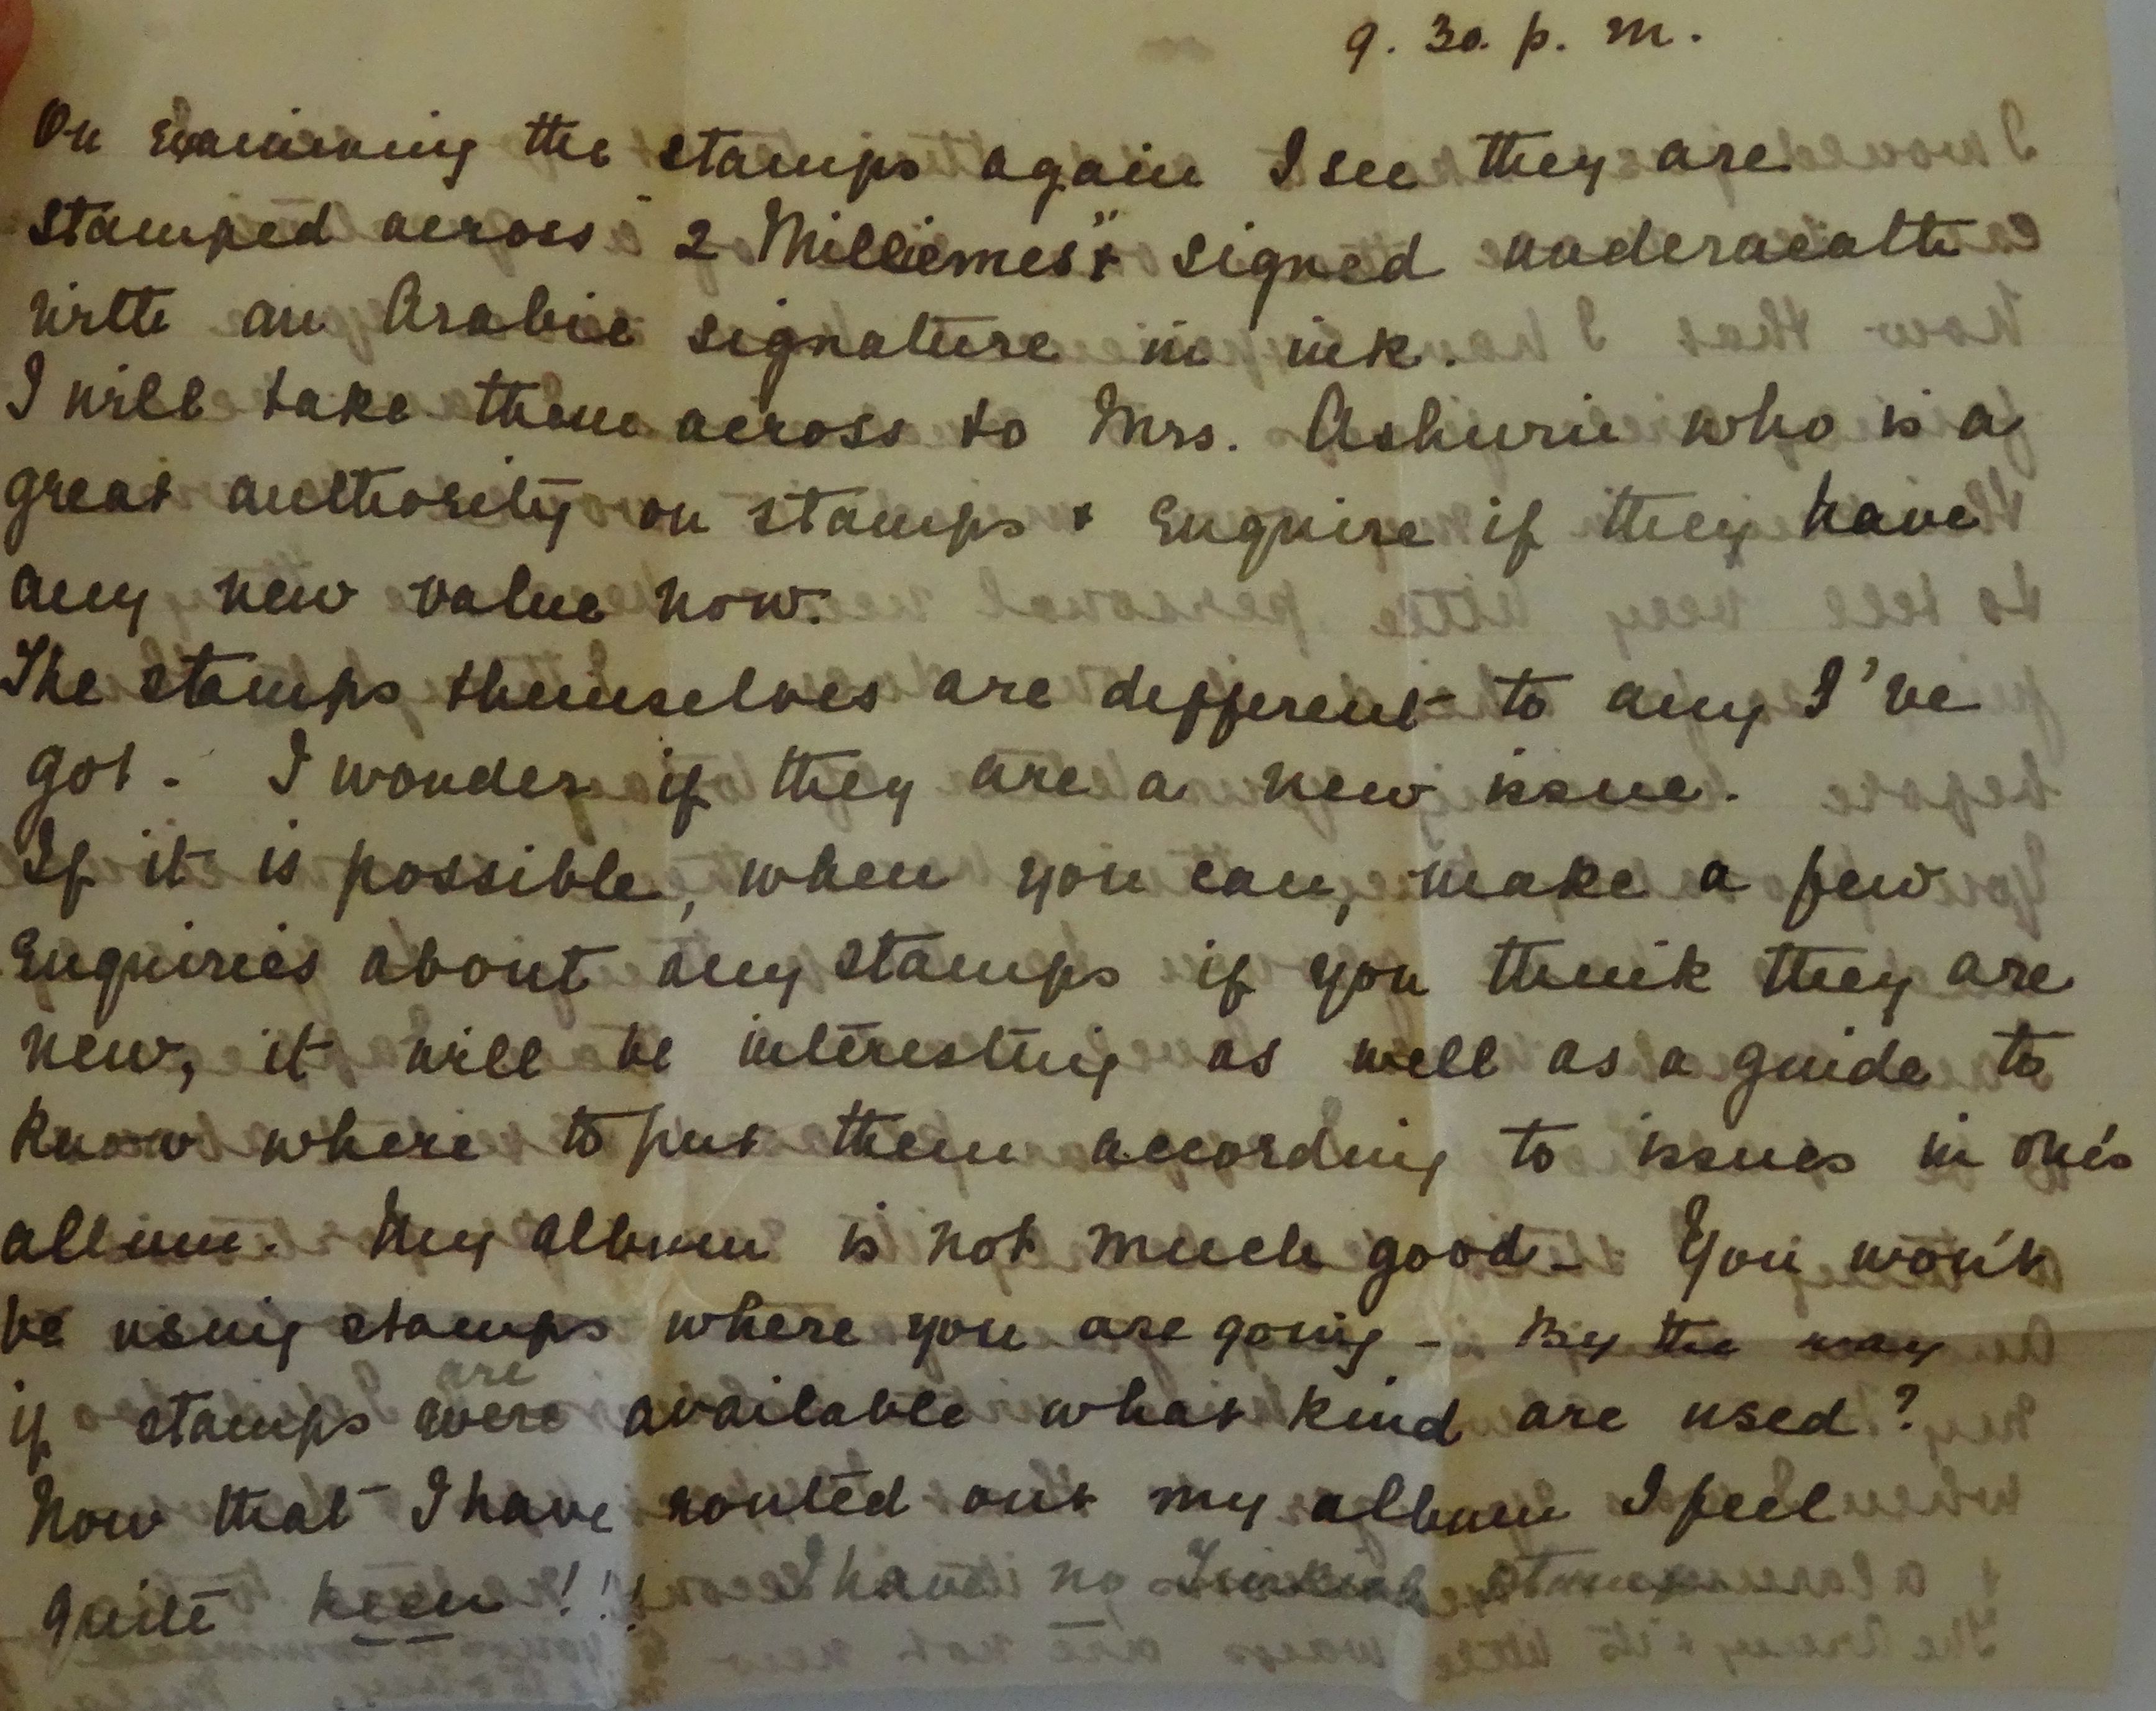 9. 30. p. m.
On Examining the stamps again I see they are
stamped across "2 Milliemes" & signed underneath
with an Arabic signature in ink.
I will take them across to Mrs. Ashurie who is a
great authority on stamps & Enquire if they have
any new value now.
The stamps themselves are different to any I've
got. I wonder if they are a new issue.
If it is possible, when you can, make a few
Enquiries about any stamps if you think they are
new, it will be interesting as well as a guide to
know where to put them according to issues in one's
album. My album is not much good - You won't
be using stamps where you are going - By the way
are
if stamps were available what kind are used?
Now that I have routed out my album I feel
quite keen!!! I have no Turkish stamps